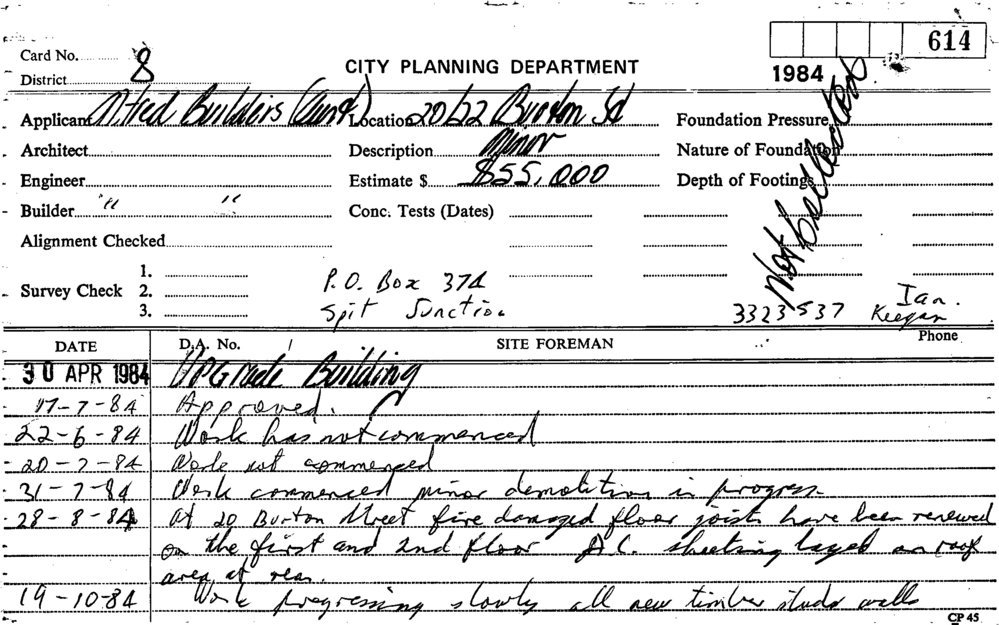 614
Card No. 8
District
CITY PLANNING DEPARTMENT
1984
Applicant Alfred Builders (Aust) Location 20/22 Burton St Foundation Pressure
Architect Description Minor Nature of Foundation
Engineer Estimate $ $55,000 Depth of Footings
Not Collected
Builder " " Conc. Tests (Dates)
Alignment Checked
Survey Check 1.
2.
3.
P.O. Box 374
Spit Junction
3323537 Ian. Keegan
Phone
DATE D.A. No. SITE FOREMAN
30 APR 1984 UPGrade Building
17-7-84 Approved.
22-6-84 Work has not commenced
20-7-84 Work not commenced
31-7-84 Work commenced minor demolition in progress.
28-8-84 At 20 Burton Street fire damaged floor joists have been renewed
on the first and 2nd floor A.C. sheeting layed on roof
area at rear.
19-10-84 Work progressing slowly all new timber studs walls
CP 45